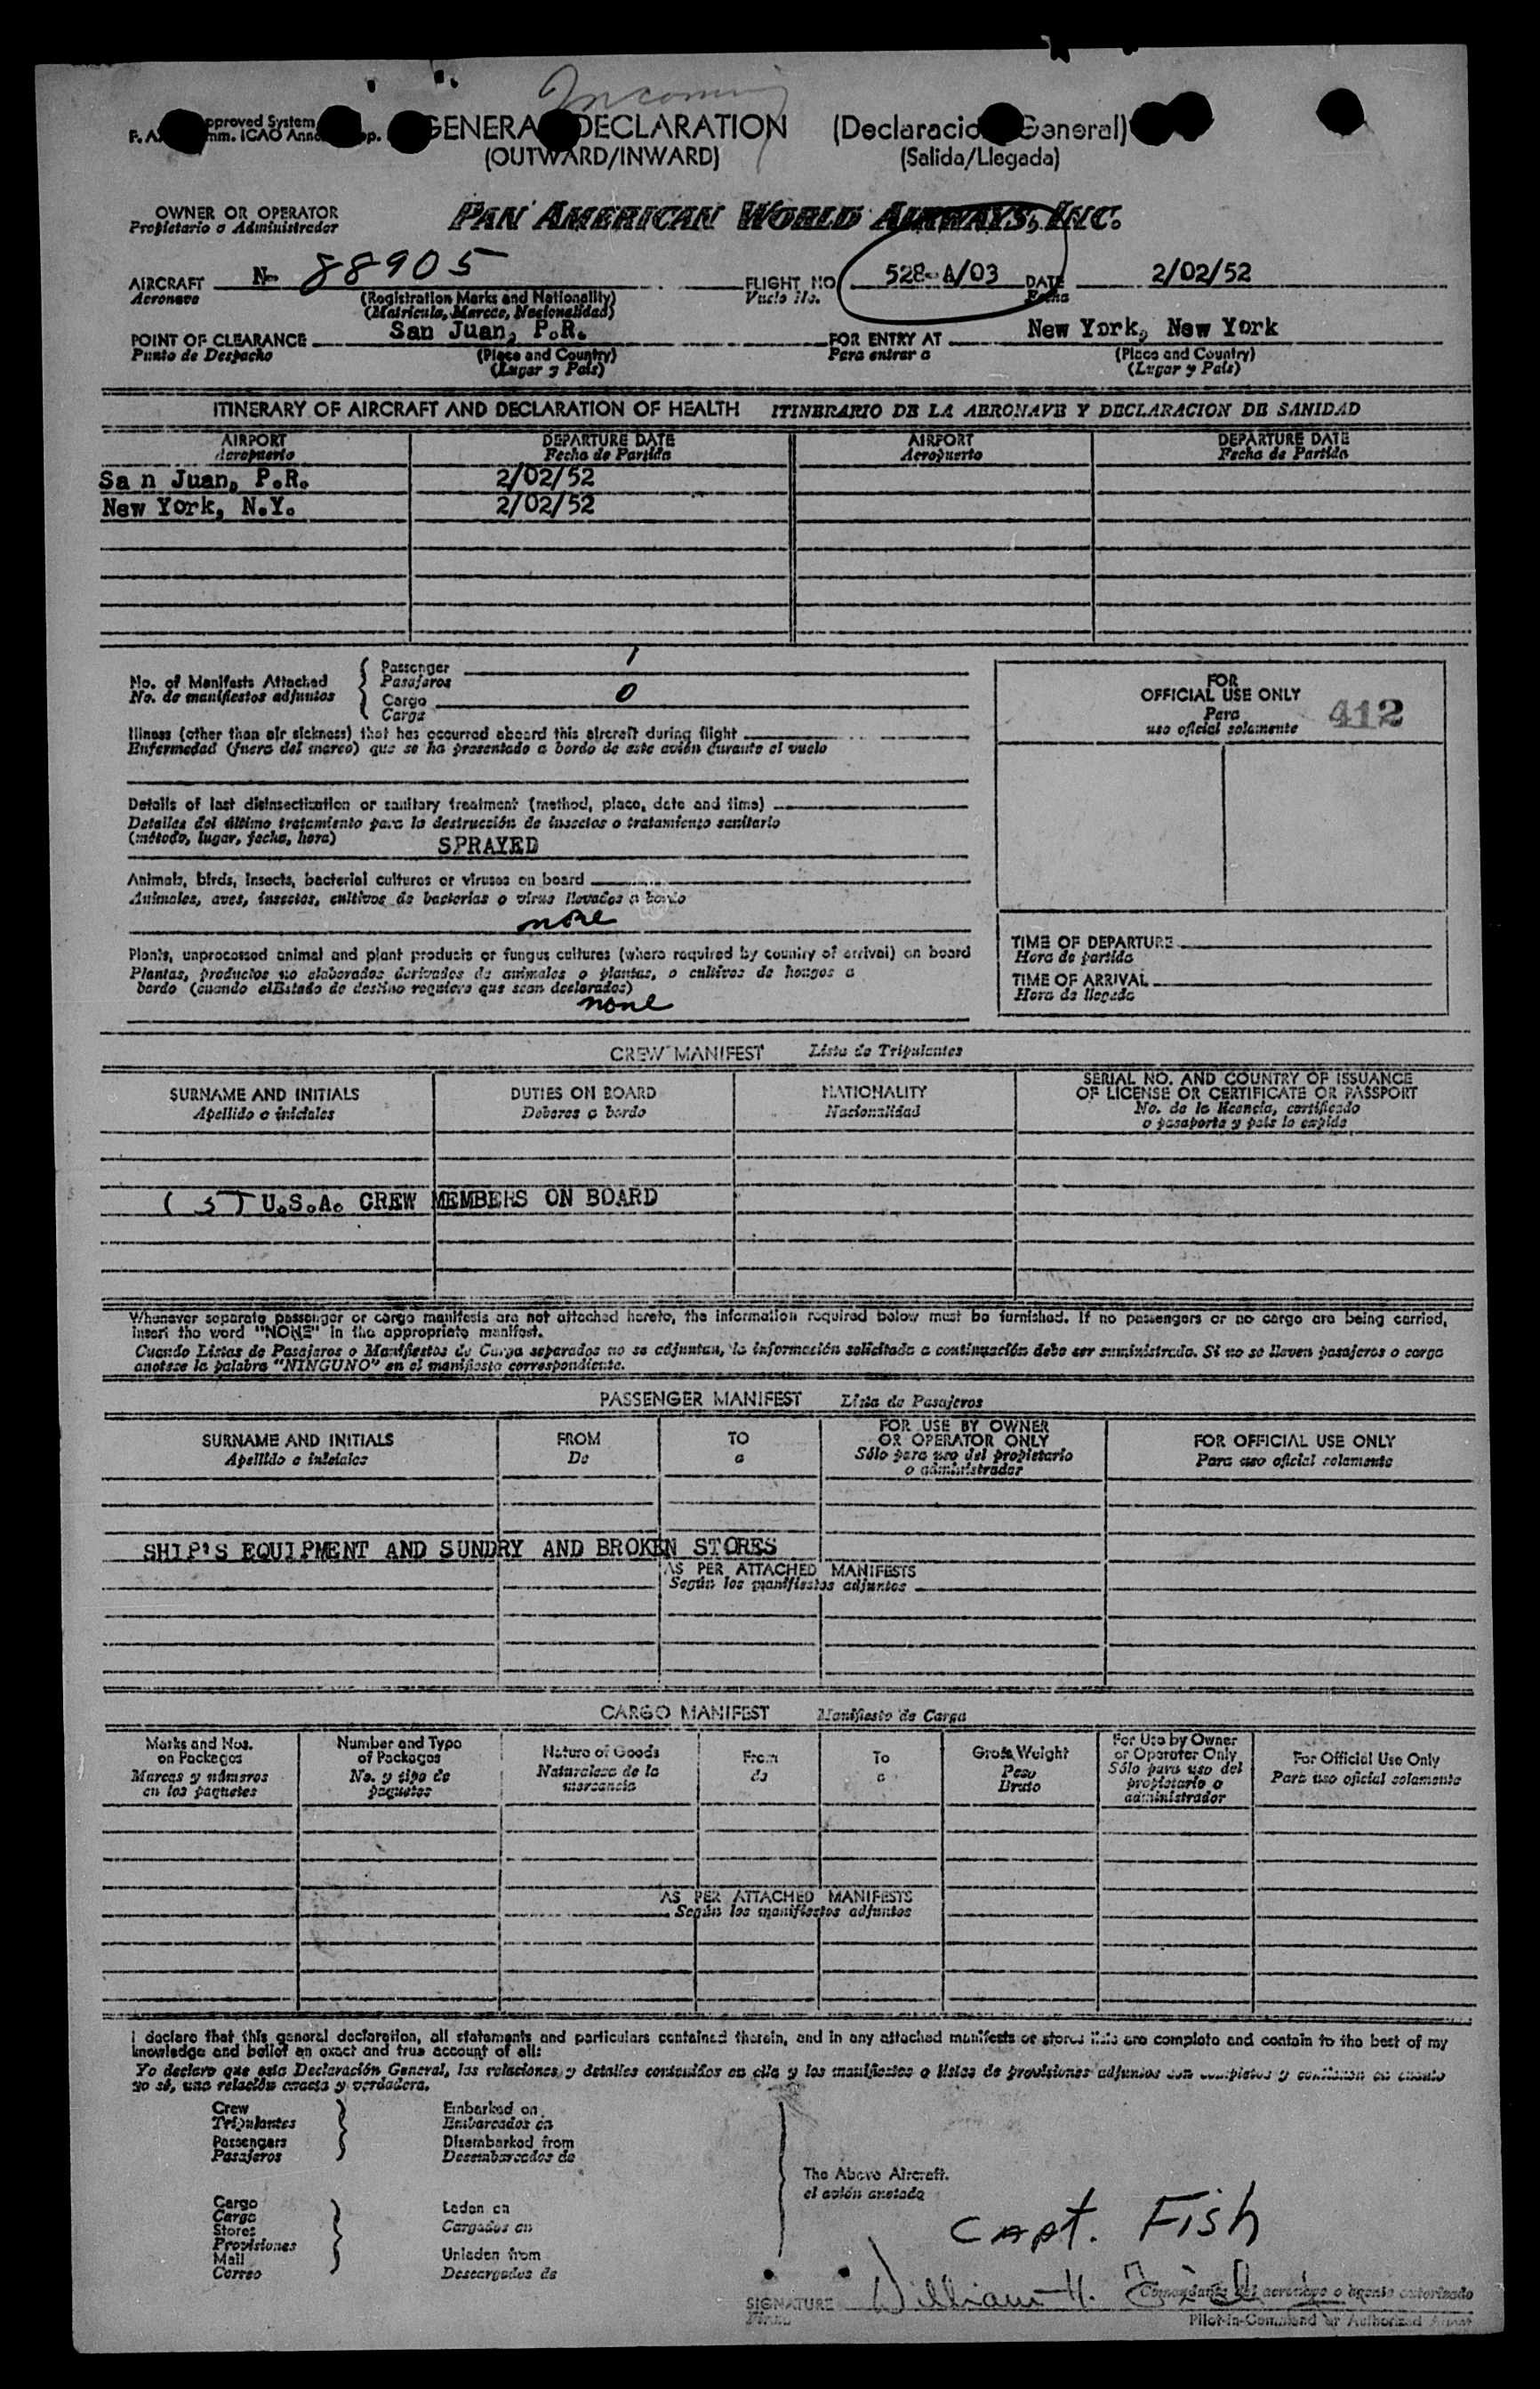 Incoming
pproved System
F. A. mm. ICAO Ann p.
GENERA DECLARATION (Declaracio General)
(OUTWARD/INWARD) (Salida/Llegada)
OWNER OR OPERATOR
Propietario o Administrador
PAN AMERICAN WORLD AIRWAYS, INC.
AIRCRAFT N- 88905 FLIGHT NO 528-A/03 DATE 2/02/52
Aeronave (Registration Marks and Nationality) Vuelo No. Fecha
(Matricula, Marcas, Nacionalidad)
POINT OF CLEARANCE San Juan, P.R. FOR ENTRY AT New York, New York
Punto de Despacho (Place and Country) Para entrar a (Place and Country)
(Lugar y País) (Lugar y País)
ITINERARY OF AIRCRAFT AND DECLARATION OF HEALTH ITINERARIO DE LA AERONAVE Y DECLARACION DE SANIDAD
AIRPORT DEPARTURE DATE AIRPORT DEPARTURE DATE
Aeropuerto Fecha de Partida Aeropuerto Fecha de Partida
Sa n Juan, P.R. 2/02/52
New York, N.Y. 2/02/52
No. of Manifests Attached
No. de manifiestos adjuntos
Passenger 1
Pasajeros
Cargo 0
Carga
FOR
OFFICIAL USE ONLY
Para
uso oficial solamente
412
Illness (other than air sickness) that has occurred aboard this aircraft during flight
Enfermedad (fuera del mareo) que se ha presentado a bordo de este avión durante el vuelo
Details of last disinsectization or sanitary treatment (method, place, date and time)
Detalles del último tratamiento para la destrucción de insectos o tratamiento sanitario
(método, lugar, fecha, hora)
SPRAYED
Animals, birds, insects, bacterial cultures or viruses on board
Animales, aves, insectos, cultivos de bacterias o virus llevados a bordo
none
Plants, unprocessed animal and plant products or fungus cultures (where required by country of arrival) on board
Plantas, productos no elaborados derivados de animales o plantas, o cultivos de hongos a
bordo (cuando elEstado de destino requiera que sean declarados)
none
TIME OF DEPARTURE
Hora de partida
TIME OF ARRIVAL
Hora de llegada
CREW MANIFEST Lista de Tripulantes
SURNAME AND INITIALS DUTIES ON BOARD NATIONALITY SERIAL NO. AND COUNTRY OF ISSUANCE
Apellido e iniciales Deberes a bordo Nacionalidad OF LICENSE OR CERTIFICATE OR PASSPORT
No. de la licencia, certificado
o pasaporte y país lo expide
( 5 ) U.S.A. CREW MEMBERS ON BOARD
Whenever separate passenger or cargo manifests are not attached hereto, the information required below must be furnished. If no passengers or no cargo are being carried,
insert the word "NONE" in the appropriate manifest.
Cuando Listas de Pasajeros o Manifiestos de Carga separados no se adjuntan, la información solicitada a continuación debe ser suministrada. Si no se lleven pasajeros o carga
anotese la palabra "NINGUNO" en el manifiesto correspondiente.
PASSENGER MANIFEST Lista de Pasajeros
SURNAME AND INITIALS FROM TO FOR USE BY OWNER FOR OFFICIAL USE ONLY
Apellido e iniciales De a OR OPERATOR ONLY Para uso oficial solamente
Sólo para uso del propietario
o administrador
SHIP'S EQUIPMENT AND SUNDRY AND BROKEN STORES
AS PER ATTACHED MANIFESTS
Según los manifiestos adjuntos
CARGO MANIFEST Manifiesto de Carga
Marks and Nos. Number and Type Nature of Goods From To Gross Weight For Use by Owner For Official Use Only
on Packages of Packages Naturaleza de la de a Peso or Operator Only Para uso oficial solamente
Marcas y números No. y tipo de mercancia Bruto Sólo para uso del
en los paquetes paquetes propietario o
administrador
AS PER ATTACHED MANIFESTS
Según los manifiestos adjuntos
I declare that this general declaration, all statements and particulars contained therein, and in any attached manifests or stores lists are complete and contain to the best of my
knowledge and belief an exact and true account of all:
Yo declaro que esta Declaración General, las relaciones y detalles contenidos en ella y los manifiestos o listas de provisiones adjuntos son completos y contienen en cuanto
yo sé, una relación exacta y verdadera.
Crew Embarked on
Tripulantes Embarcados en
Passengers Disembarked from
Pasajeros Desembarcados de
The Above Aircraft.
el avión anotado
Cargo Laden on
Carga Cargados en
Stores
Provisiones Unladen from
Mail Descargados de
Correo
Capt. Fish
SIGNATURE William H. Fish
Firma
Comandante del aeronave o agente autorizado
Pilot-in-Command or Authorized Agent